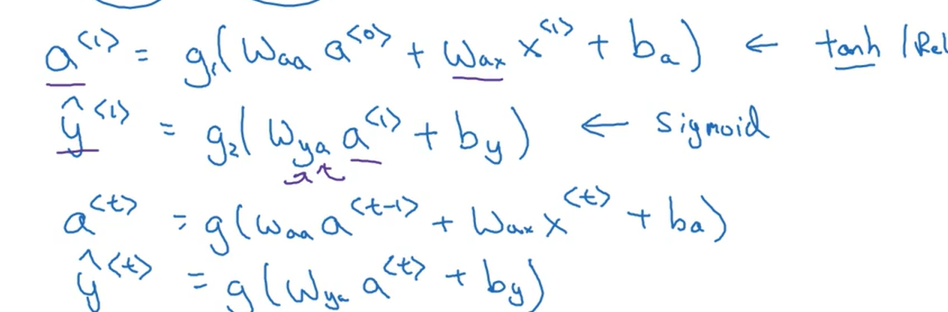 a^<1> = g₁(W_aa a^<0> + W_ax x^<1> + b_a) ← tanh / Rel
ŷ^<1> = g₂(W_ya a^<1> + b_y) ← sigmoid
a^<t> = g(W_aa a^<t-1> + W_ax x^<t> + b_a)
ŷ^<t> = g(W_ya a^<t> + b_y)